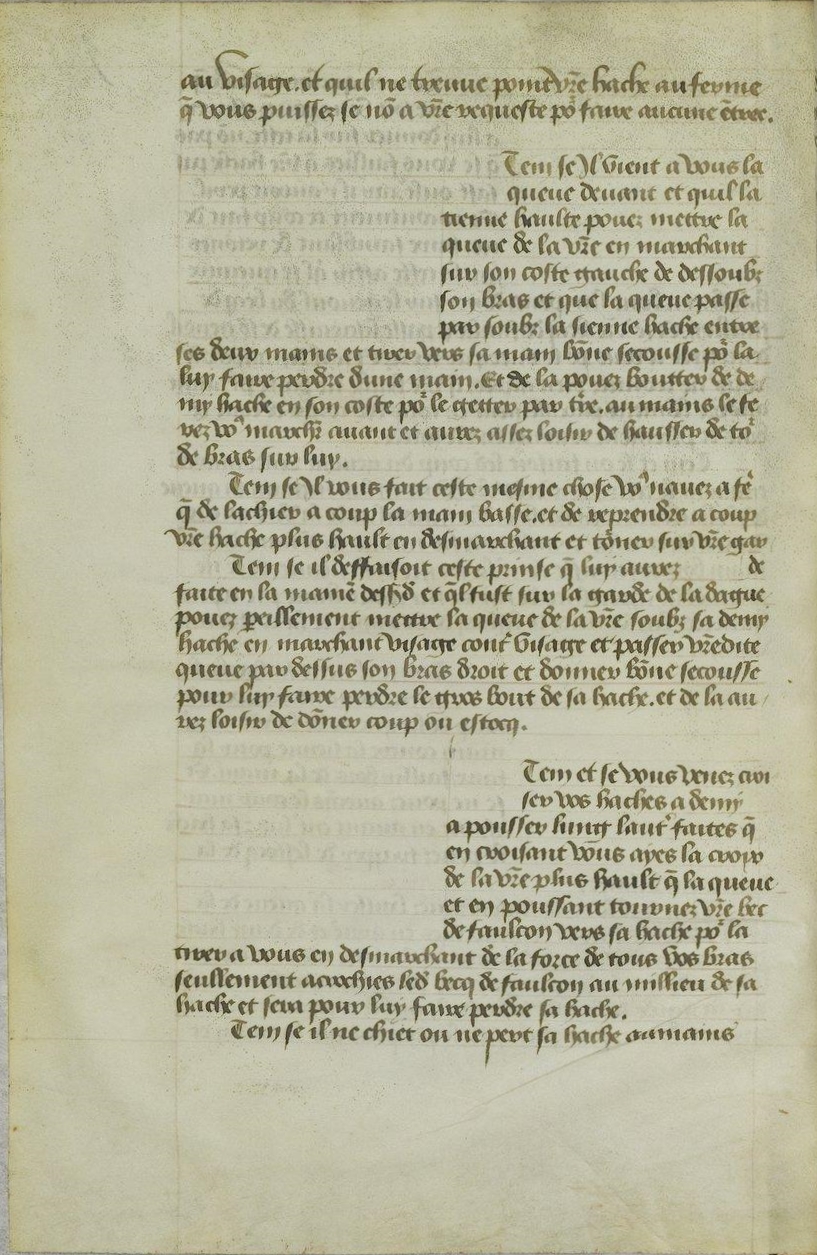 au visage. et quil ne treuue point vr̄e hache au ferme
q̄ vous puissez se nō a vr̄e requeste po᷑ faire aucune ētree.
Tem se Jl vient a vous la
queue deuant et quil la
tienne haulte pouez mettre la
queue de la vr̄e en marchant
sur son coste gauche de dessoubz
son bras et que la queue passe
par soubz la sienne hache entre
ses deux mains et tirer vers sa main bōne secousse po᷑ la
luy faire perdre dune main. Et de la pouez boutter de de
my hache en son coste po᷑ le getter par tr̄e. au mains le fe
rez vo᷒ march᷑ auant et aurez assez loisir de hausser de to᷑
de bras sur luy.
Tem se Jl vous fait ceste mesme chose vo᷒ nauez a fē
q̄ de lachier a coup la main basse. et de reprendre a coup
vr̄e hache plus hault en desmarchant et to᷑ner sur vr̄e gar
Tem se il deffaisoit ceste prinse q̄ luy aurez de
faite en la manie᷑ dess᷒d et q̄l fust sur la garde de la dague
pouez peillement mettre la queue de la vr̄e soubz sa demy
hache en marchant visage cont᷑ visage et passer vr̄edite
queue par dessus son bras droit et donner bōne secousse
pour luy faire perdre le gros bout de sa hache. et de la au
rez loisir de dōner coup ou estocq.
Tem et se vous venez croi
ser vos haches a demy
a pousser lung laut᷑ faites q̄
en croisant vous ayes la croix
de la vr̄e plus hault q̄ la queue
et en poussant tournez vr̄e bec
de faulcon vers sa hache po᷑ la
tirer a vous en desmarchant de la force de tous vos bras
seullement acrochies led becq de faulcon au millieu de sa
hache et sera pour luy faire perdre sa hache.
Tem se il ne chiet ou ne pert sa hache aumains